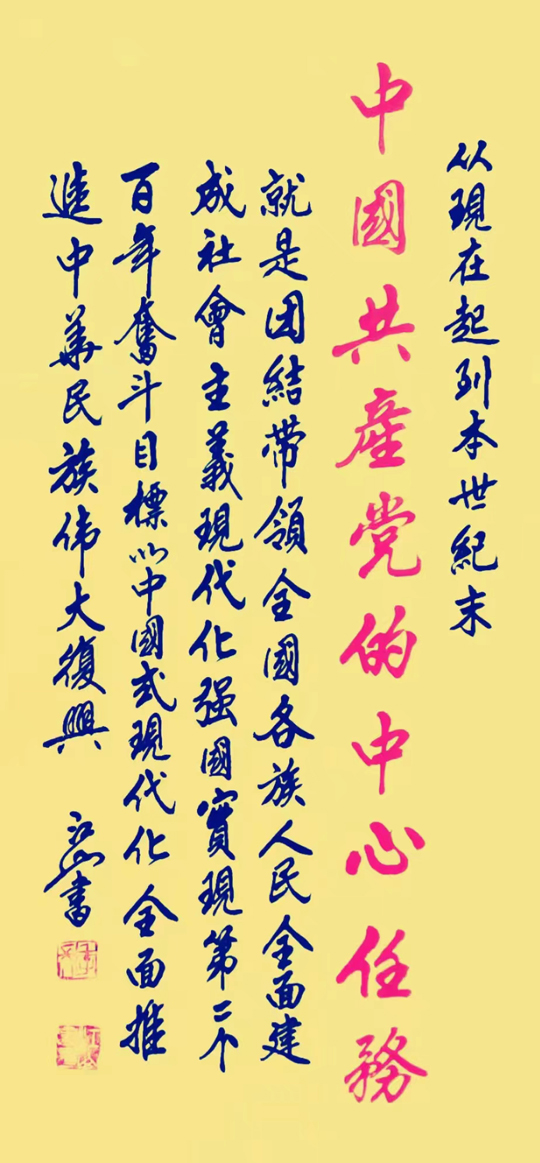 从現在起到本世紀末
中國共産党的中心任務
就是团結带領全國各族人民全面建
成社會主義現代化强國實現第二个
百年奮斗目標以中國式現代化全面推
進中華民族偉大復興
江山書